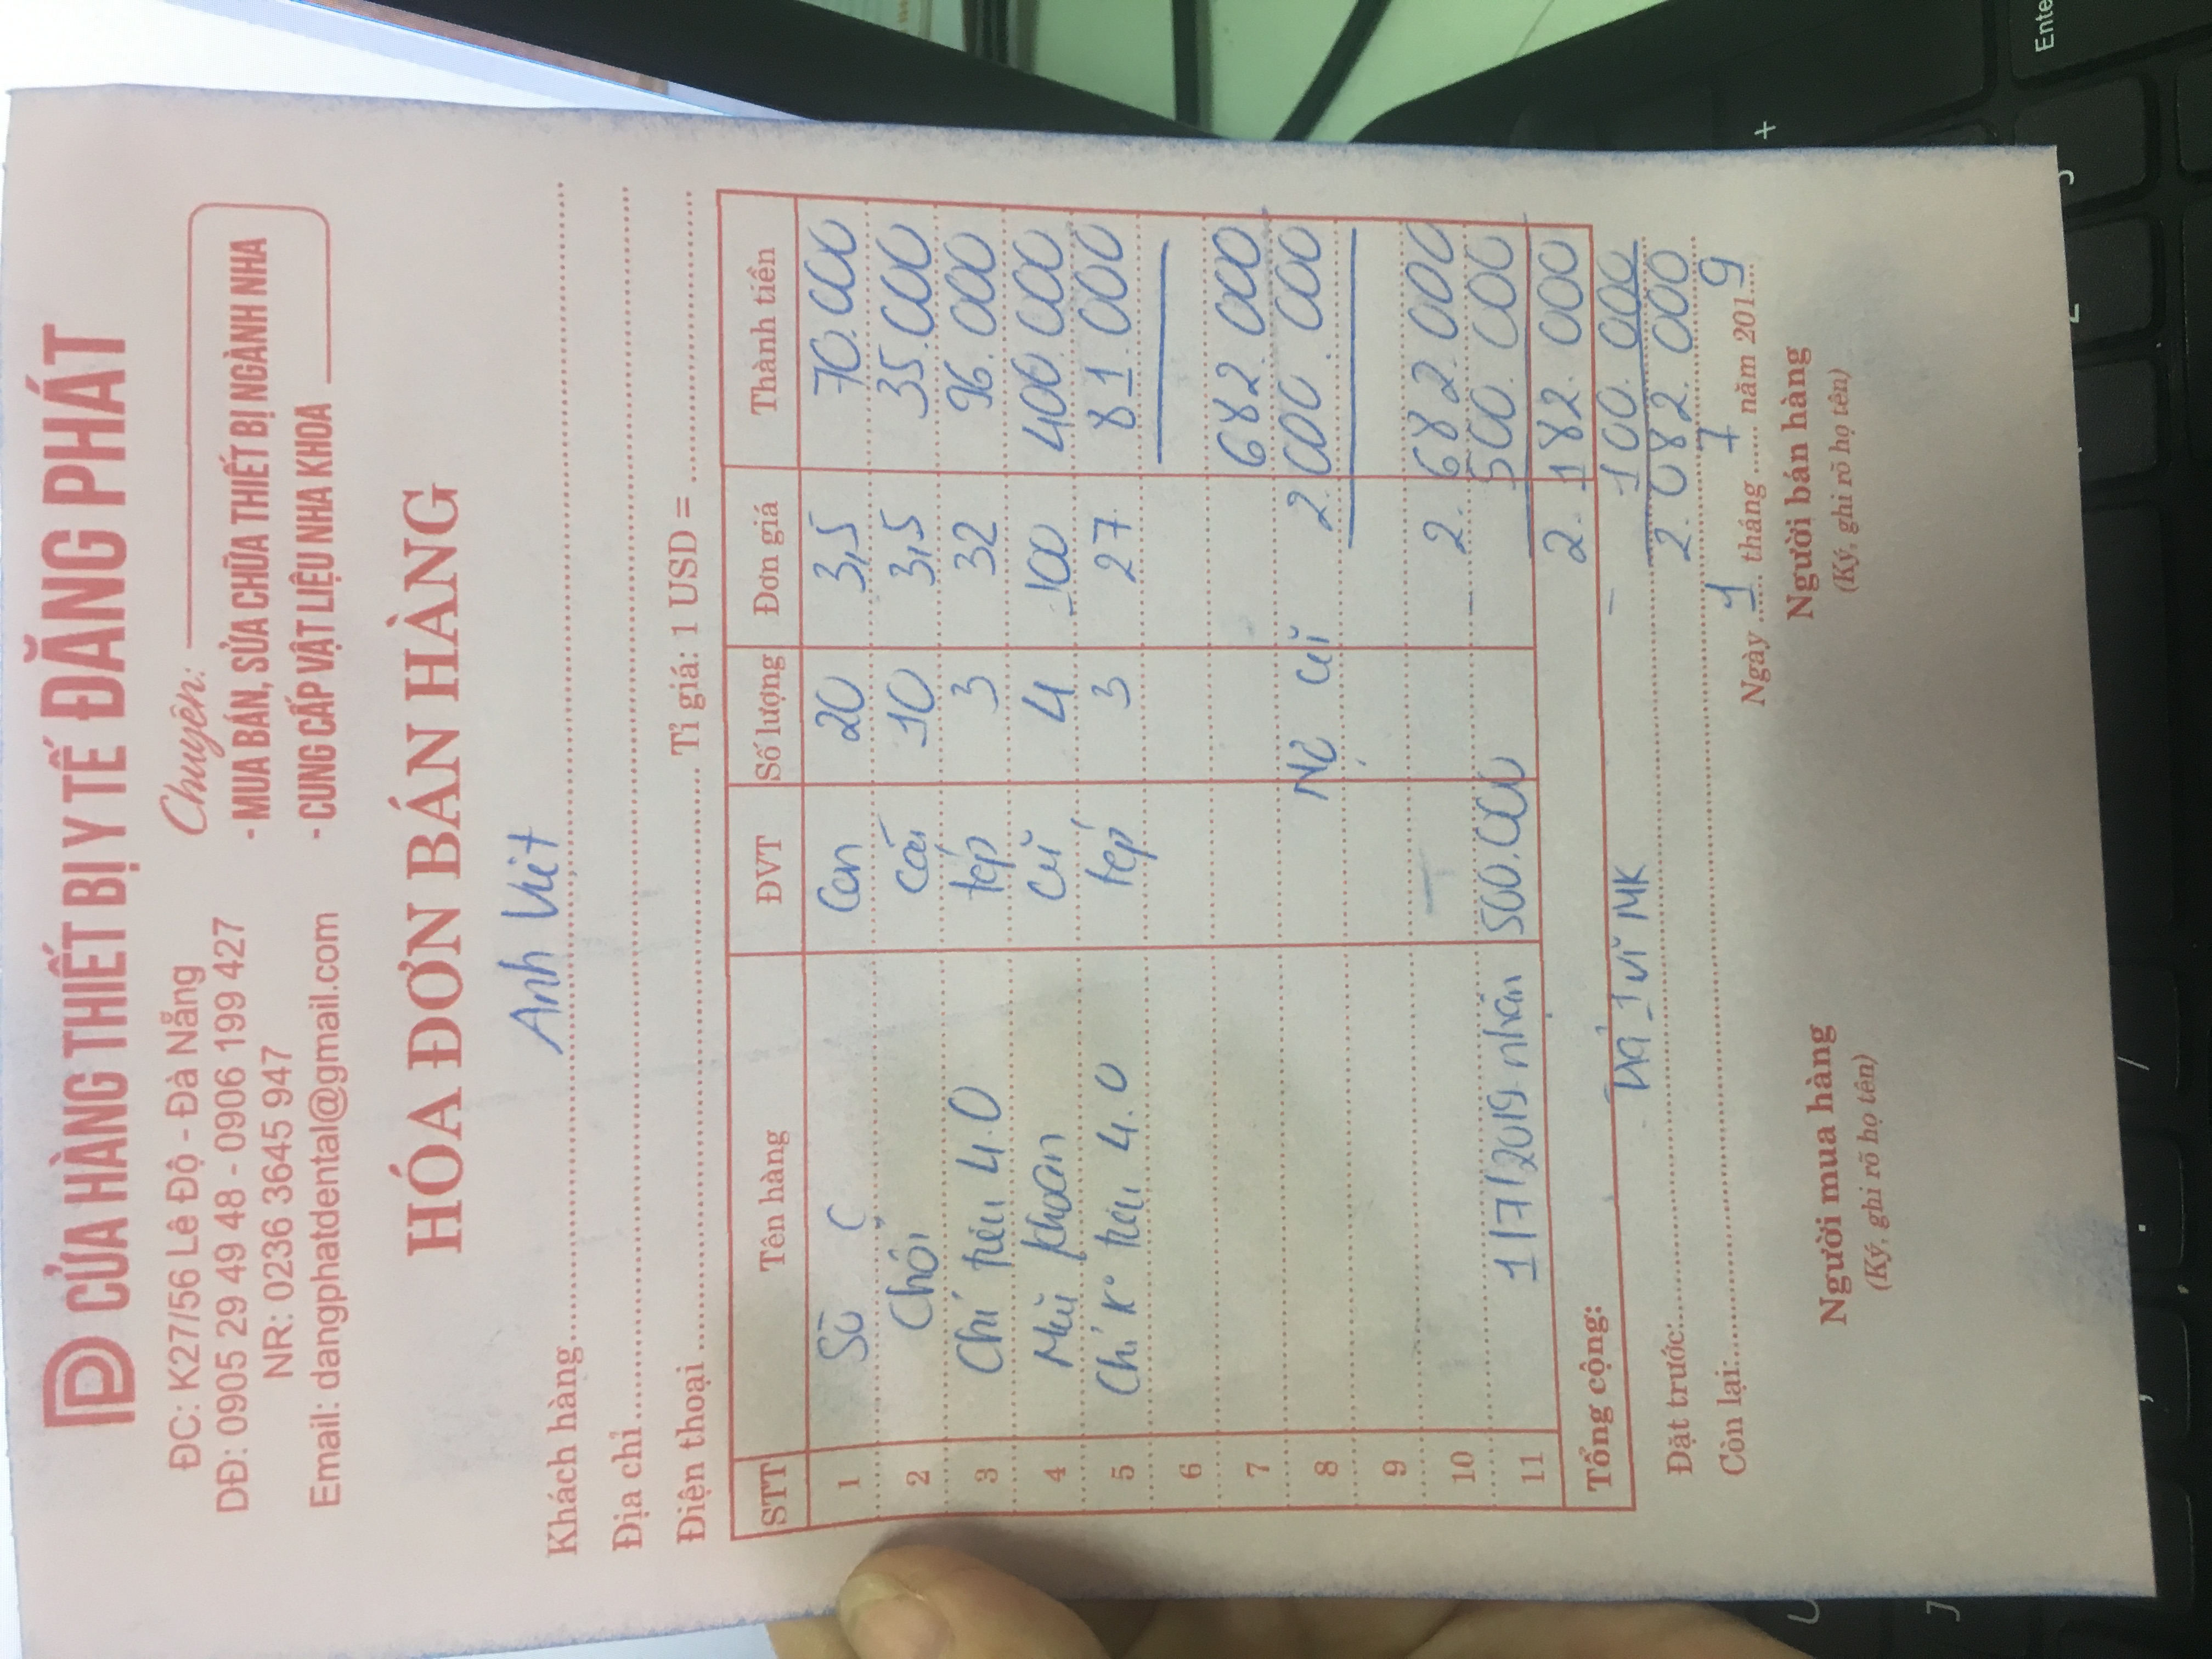 CỬA HÀNG THIẾT BỊ Y TẾ ĐĂNG PHÁT
ĐC: K27/56 Lê Độ - Đà Nẵng
DĐ: 0905 29 49 48 - 0906 199 427
NR: 0236 3645 947
Email: dangphatdental@gmail.com
Chuyên:
- MUA BÁN, SỬA CHỮA THIẾT BỊ NGÀNH NHA
- CUNG CẤP VẬT LIỆU NHA KHOA
HÓA ĐƠN BÁN HÀNG
Khách hàng Anh Việt
Địa chỉ
Điện thoại Tỉ giá: 1 USD =
STT Tên hàng ĐVT Số lượng Đơn giá Thành tiền
1 Con 20 3,5 70.000
2 Chổi cái 10 3,5 35.000
3 Chỉ tiêu 4.0 tép 3 32 96.000
4 Mũi khoan 4 100 400.000
5 Chỉ Ko tiêu 4.0 tép 3 27 81.000
6
7 682.000
8 Nợ cũ 2.000.000
9
10 2.682.000
11 1/7/2019 nhận 500.000 - 500.000
Tổng cộng: 2.182.000
Trả 1 vỉ MK - 100.000
Đặt trước: 2.082.000
Còn lại:
Ngày 1 tháng 7 năm 2019
Người mua hàng Người bán hàng
(Ký, ghi rõ họ tên) (Ký, ghi rõ họ tên)
Enter